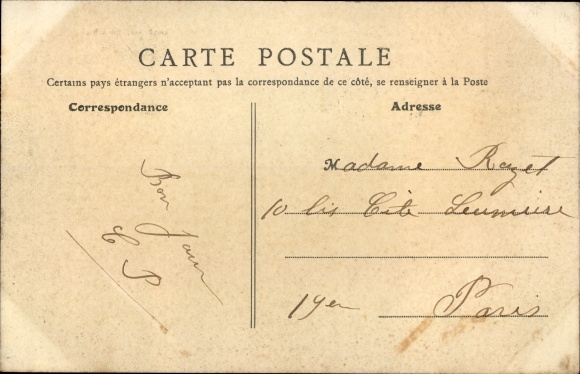 CARTE POSTALE
Certains pays étrangers n'acceptant pas la correspondance de ce côté, se renseigner à la Poste
Correspondance
Adresse
Bon Jour
E P
Madame Rozet
10 bis Cité Lemière
19em Paris